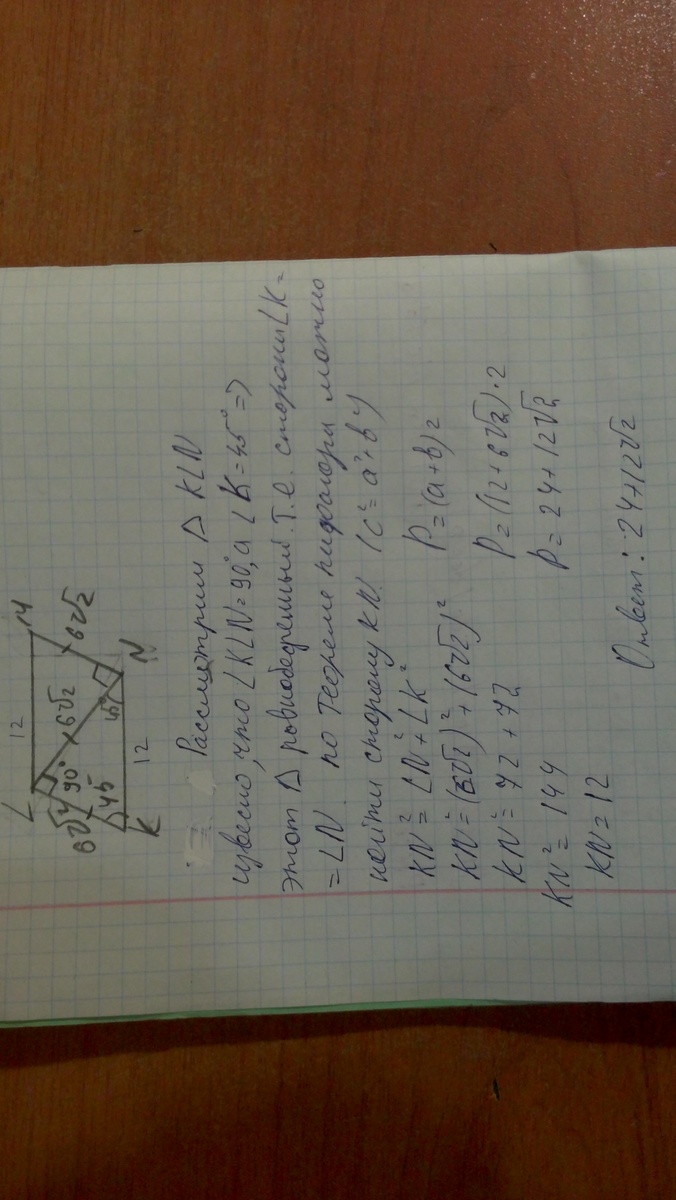 L 12 M
6√2 90° 6√2 6√2
45 45°
K 12 N
Рассмотрим △ KLN
извесно, что ∠KLN=90°, а ∠K=45° =>
этот △ равнобедренный т.е. стороны LK=
=LN. по теореме пифагора можно
найти сторону KN. (c²=a²+b²)
KN²=LN²+LK² P=(a+b)2
KN²=(6√2)²+(6√2)² P=(12+6√2)·2
KN²=72+72 P=24+12√2
KN²=144
KN=12
Ответ: 24+12√2